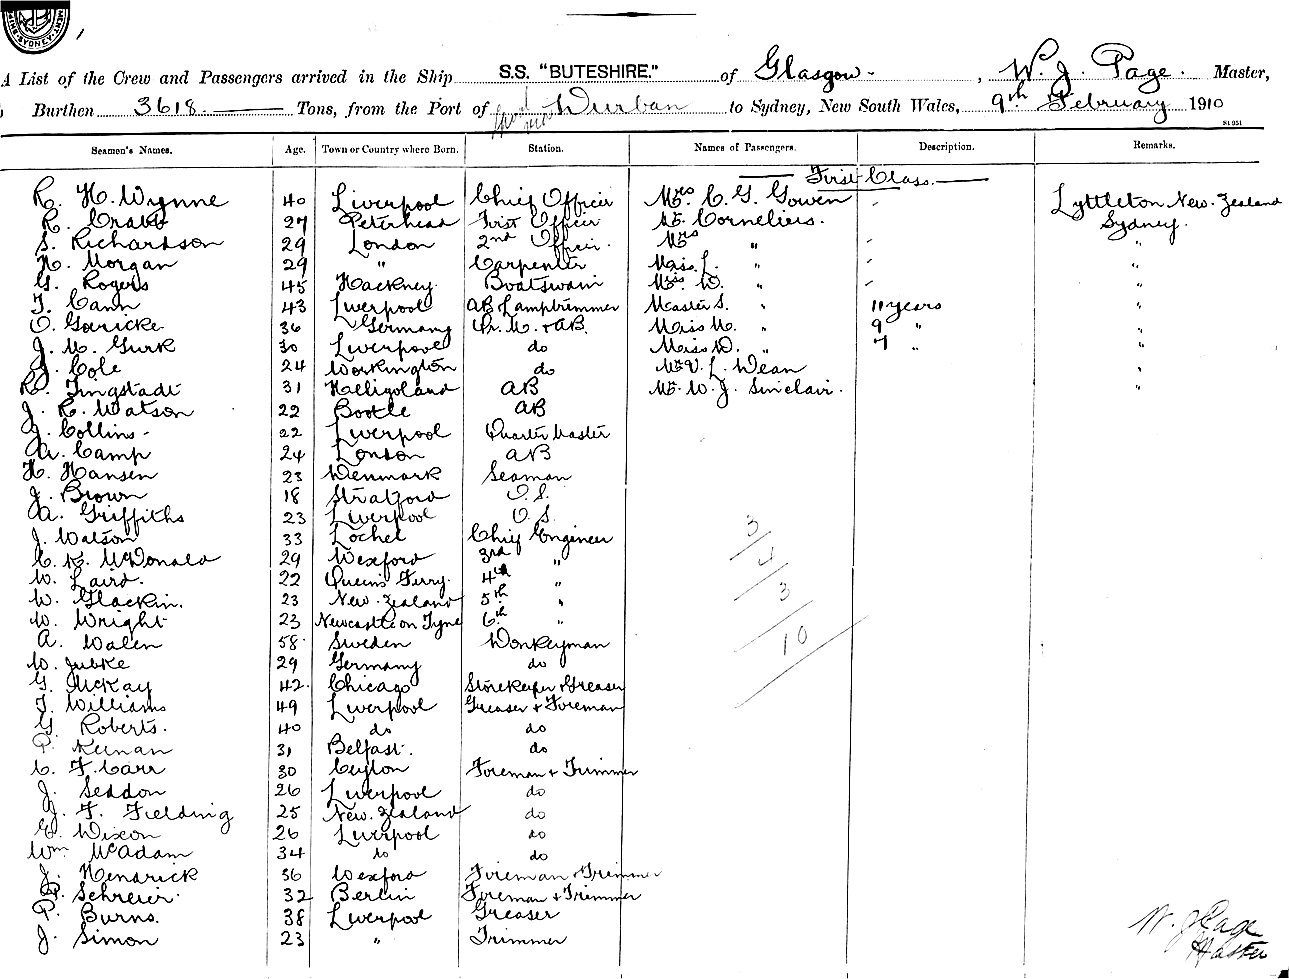 SYDNEY
A List of the Crew and Passengers arrived in the Ship S.S. "BUTESHIRE." of Glasgow , W. J. Page. Master,
Burthen 3618 Tons, from the Port of Durban to Sydney, New South Wales, 9th February 1910
S1 951
Seamen's Names. Age. Town or Country where Born. Station. Names of Passengers. Description. Remarks.
First Class.
R. H. Wynne 40 Liverpool Chief Officer Mrs C. G. Gowen Lyttleton New Zealand
R. Crabb 27 Peterhead First Officer Mr. Corneliers. Sydney.
S. Richardson 29 London 2nd Officer. Mrs " "
H. Morgan 29 " Carpenter Miss L. " "
G. Rogers 45 Hackney. Boatswain Miss D. " "
T. Cann 43 Liverpool AB Lamptrimmer Master S. " 11 years "
O. Goricke 36 Germany Qr. M. & AB. Miss M. " 9 " "
J. M. Gurk 30 Liverpool do Miss D. " 7 " "
J. Cole 24 Workington do Mr V. L. Dean "
R. Tingstadt 31 Helligoland AB Mr. W. J. Sinclair. "
J. R. Watson 22 Bootle AB
J. Collins 22 Liverpool Quarter Master
A. Camp 24 London AB
H. Hansen 23 Denmark Seaman
J. Brown 18 Stratford O.S.
A. Griffiths 23 Liverpool O.S.
J. Watson 33 Lochel Chief Engineer 3
C. K. McDonald 29 Wexford 3rd " 4
W. Laird. 22 Queens Ferry. 4th "
W. Glackin. 23 New Zealand 5th " 3
W. Wright 23 Newcastle on Tyne 6th "
A. Walen 58 Sweden Donkeyman 10
W. Jubke 29 Germany do
G. McKay 42. Chicago Storekeeper & Greaser
T. Williams 49 Liverpool Greaser & Fireman
G. Roberts. 40 do do
P. Keenan 31 Belfast. do
C. F. Carr 30 Ceylon Fireman & Trimmer
J. Seddon 26 Liverpool do
J. F. Fielding 25 New Zealand do
G. Dixon 26 Liverpool do
Wm. McAdam 34 do do
J. Hendrick 36 Wexford Fireman & Trimmer
P. Schreier. 32 Berlin Fireman & Trimmer
P. Burns. 38 Liverpool Greaser
J. Simon 23 " Trimmer
W. J. Page
Master